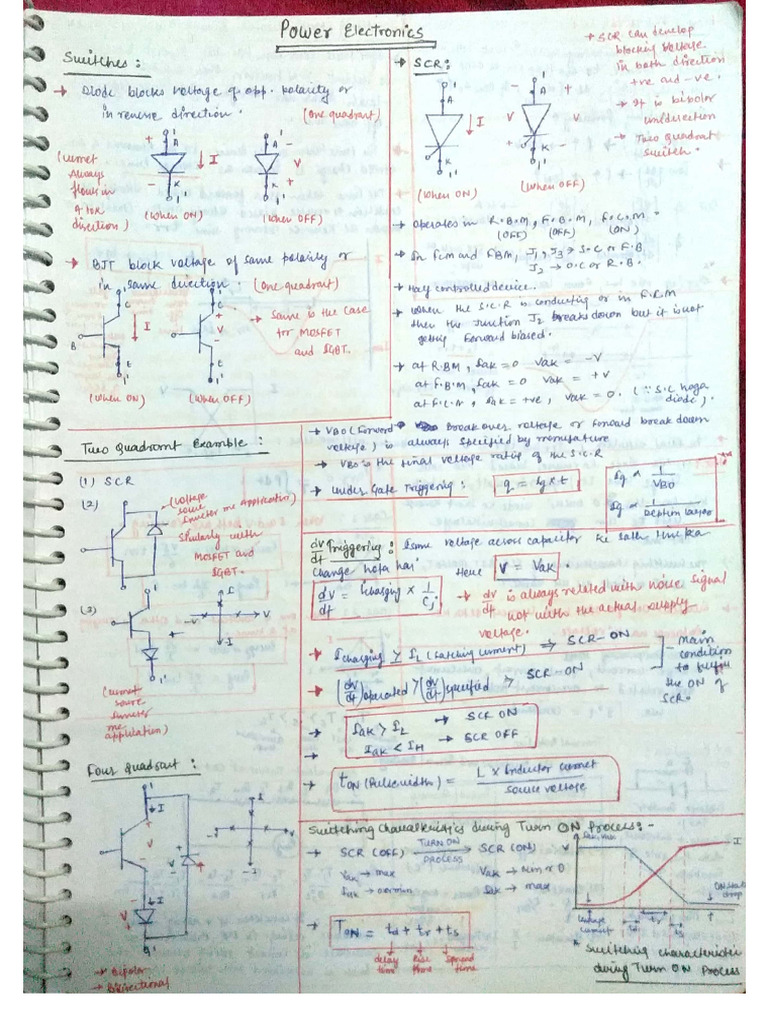 Power Electronics
Switches :
→ Diode blocks voltage of opp. polarity or
in reverse direction. (One quadrant)
(Current
Always
flows in
A to K
direction)
A
K
I
V
(When ON) (When OFF)
→ BJT block voltage of same polarity or
in same direction. (One quadrant)
B
C
E
I
V
→ Same is the case
for MOSFET
and IGBT.
(When ON) (When OFF)
→ SCR :
A
K
I
V
(When ON) (When OFF)
→ SCR can develop
blocking voltage
in both direction
+ve and -ve.
→ It is bipolar
unidirection
→ Two quadrant
switch.
→ Operates in R.B.M, F.B.M, F.C.M.
(OFF) (OFF) (ON)
→ In FCM and FBM, J1, J3 → S.C or F.B
J2 → O.C or R.B.
→ Half controlled device.
→ When the S.C.R is conducting or in F.C.M
then the Junction J2 breaks down but it is not
getting forward biased.
→ at R.B.M, Iak = 0 Vak = -V
at F.B.M, Iak = 0 Vak = +V
at F.C.M, Iak = +ve, Vak = 0. (∵ S.C hoga
diode).
→ VBO (Forward Break over voltage or forward break down
voltage) is always specified by
→ VBO is the final voltage rating of the S.C.R
→ Under Gate Triggering : q = Ig x t
Ig ∝ 1/VBO
Ig ∝ 1/Depletion layer
Two Quadrant Example :
(1) SCR
(2)
→ (Voltage
source
application)
with
MOSFET and
IGBT.
(3)
I
V
-I
(Current
source
application)
dV/dt Triggering : voltage across capacitor ke
change hota hai
Here V = Vak.
dV/dt = Icharging x 1/Cj.
→ dV/dt is always related with noise signal
not with the actual supply
voltage.
→ Icharging ≥ IL (Latching current) ⇒ SCR-ON
→ (dV/dt)operated > (dV/dt)specified ⇒ SCR-ON
main
condition
to fulfill
the ON of
SCR.
→ Iak > IL → SCR ON
→ Iak < IH → SCR OFF
→ tON (Pulsewidth) = L x Inductor current / source voltage
Four Quadrant :
I
V
-V
-I
→ Bipolar
→ Bidirectional
Switching Characteristics during Turn ON Process :-
→ SCR (OFF) TURN ON PROCESS → SCR (ON)
Vak → max Vak → min or 0
Iak → 0 or min Iak → max
→ TON = td + tr + ts
delay time
Rise time
Spread time
V
I
ON state
drop
Leakage
current
td
tr
ts
* Switching characteristic
during Turn ON Process